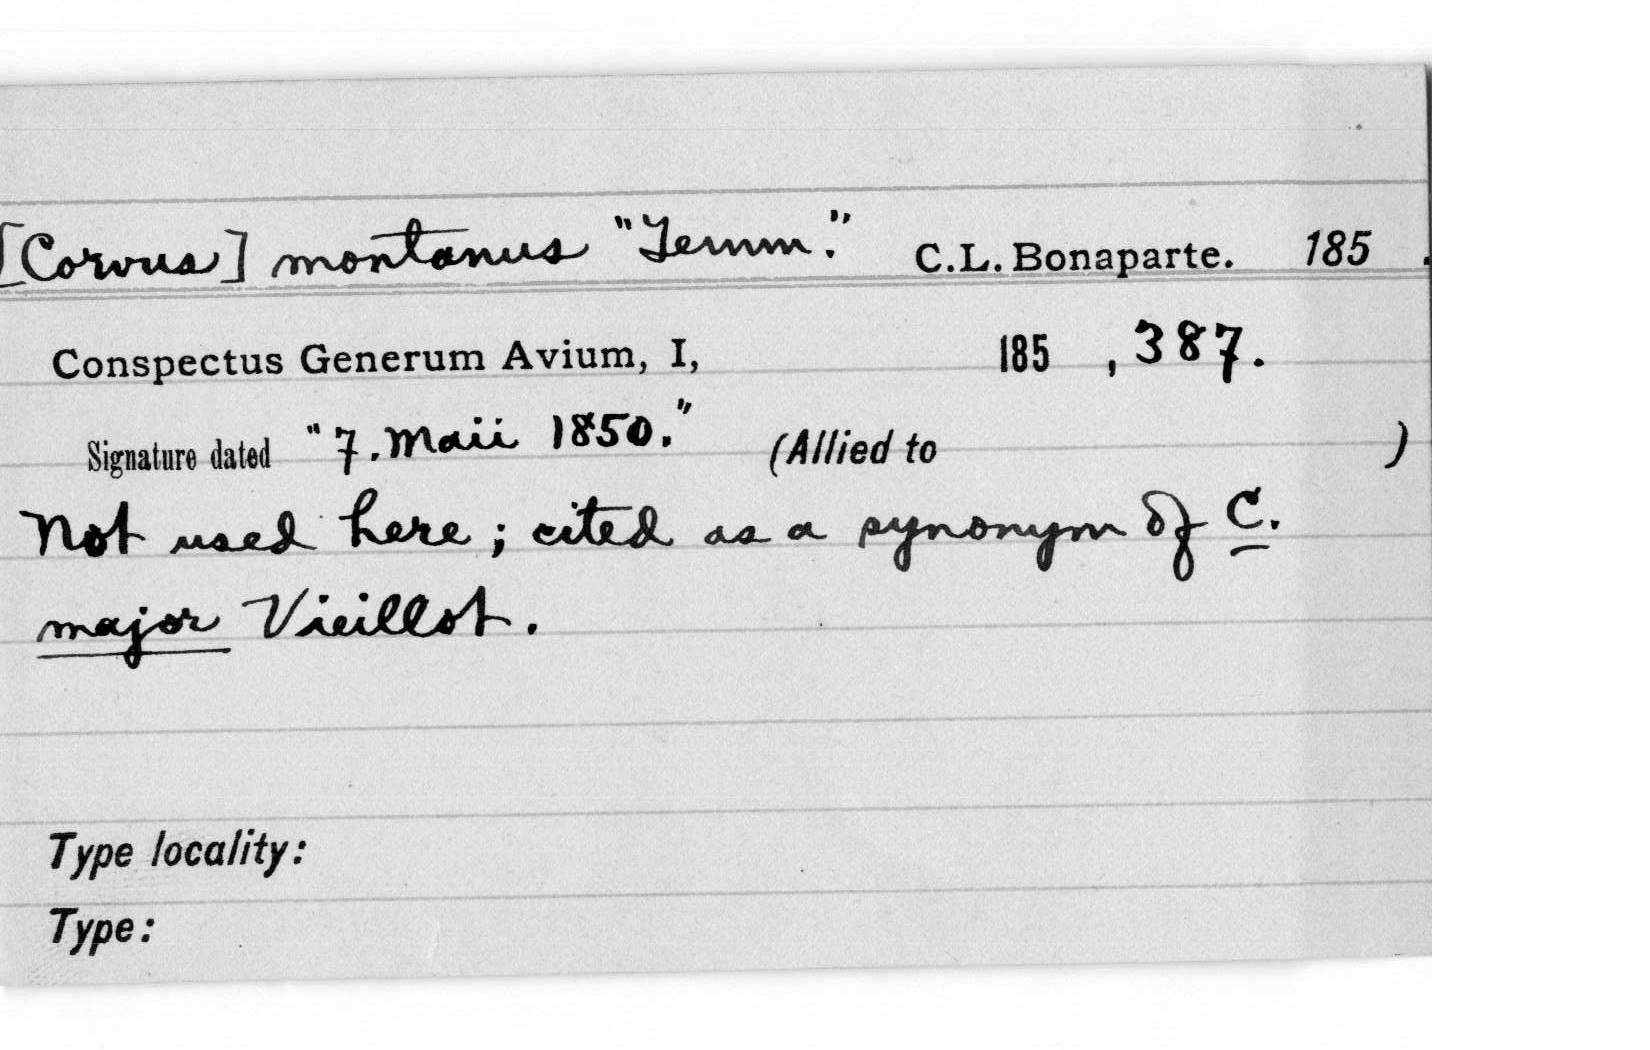 [Corvus] montanus "Temm." C.L. Bonaparte. 185 .
Conspectus Generum Avium, I, 185 , 387.
Signature dated "7. Maii 1850." (Allied to )
Not used here; cited as a synonym of C.
major Vieillot.
Type locality:
Type: